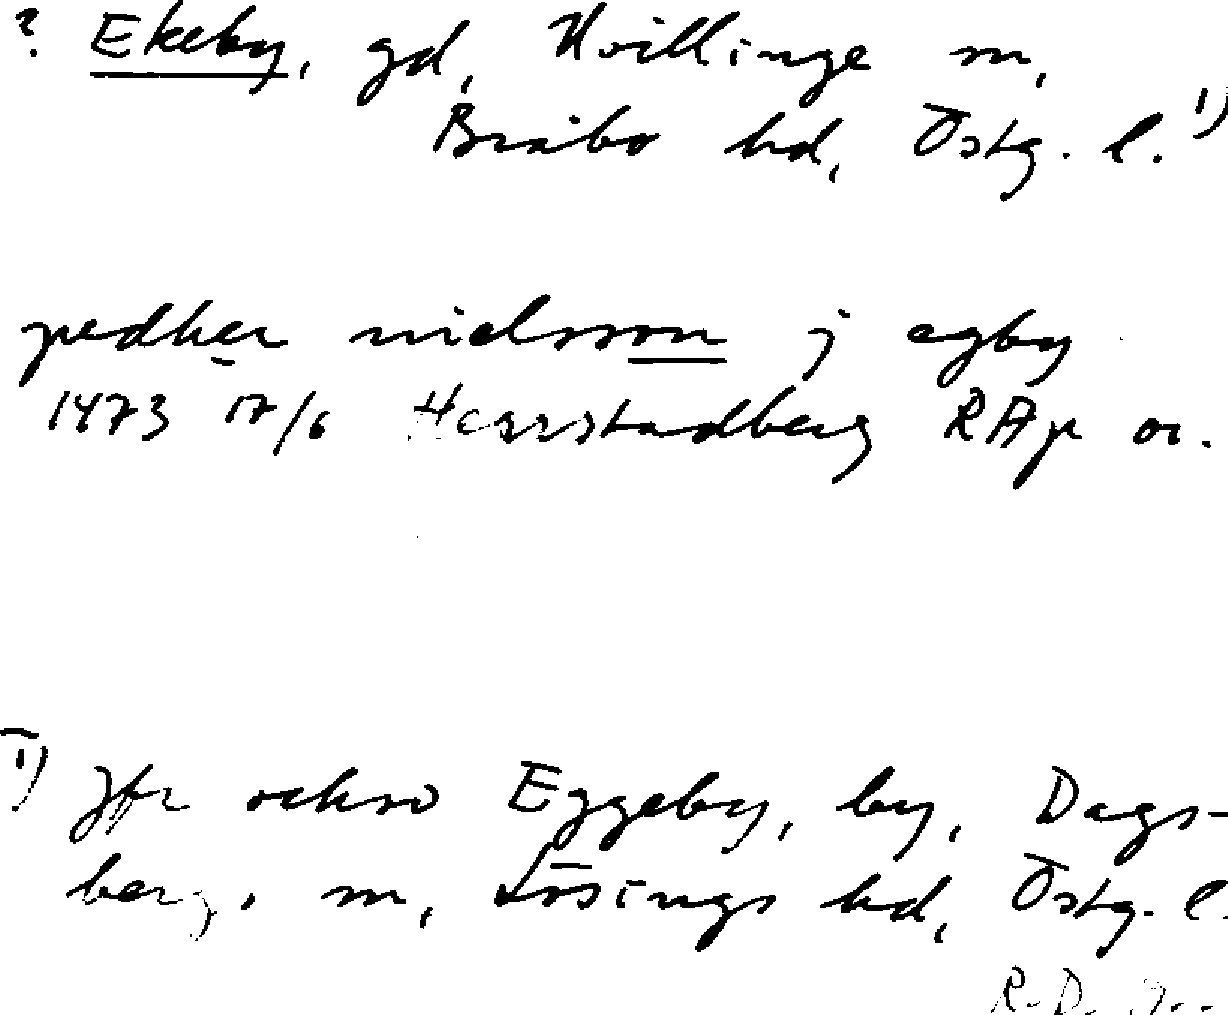 ? Ekeby, gd, Kvillinge sn,
Bråbo hd, Östg. l. 1)
pedher nielsson j egby
1473 17/6 Herrstadberg RAp or.
1) Jfr också Eggeby, by, Dags-
berg, sn, Lösings hd, Östg. l.
R. D.